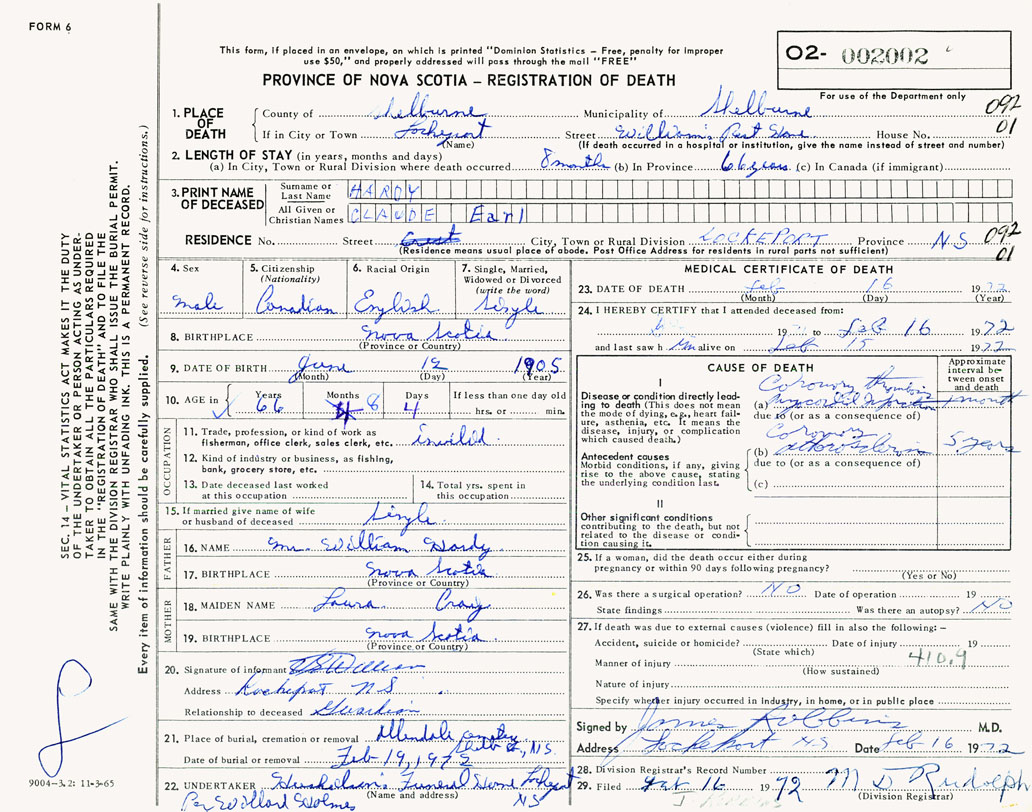 FORM 6
This form, if placed in an envelope, on which is printed "Dominion Statistics — Free, penalty for improper
use $50," and properly addressed will pass through the mail "FREE"
PROVINCE OF NOVA SCOTIA — REGISTRATION OF DEATH
O2- 002002
For use of the Department only
092
01
1. PLACE OF DEATH
County of Shelburne Municipality of Shelburne
If in City or Town Lockeport Street William's Rest Home House No.
(Name) (If death occurred in a hospital or institution, give the name instead of street and number)
2. LENGTH OF STAY (in years, months and days)
(a) In City, Town or Rural Division where death occurred 8 months (b) In Province 66 years (c) In Canada (if immigrant)
3. PRINT NAME OF DECEASED
Surname or Last Name HARDY
All Given or Christian Names CLAUDE Earl
RESIDENCE No. Street City, Town or Rural Division LOCKEPORT Province NS
092
01
(Residence means usual place of abode. Post Office Address for residents in rural parts not sufficient)
4. Sex
male
5. Citizenship (Nationality)
Canadian
6. Racial Origin
English
7. Single, Married, Widowed or Divorced (write the word)
Single
8. BIRTHPLACE Nova Scotia
(Province or Country)
9. DATE OF BIRTH June 12 1905
(Month) (Day) (Year)
10. AGE in
Years 66
Months 8
Days 4
If less than one day old
hrs. or min.
OCCUPATION
11. Trade, profession, or kind of work as
fisherman, office clerk, sales clerk, etc. invalid
12. Kind of industry or business, as fishing,
bank, grocery store, etc.
13. Date deceased last worked
at this occupation
14. Total yrs. spent in
this occupation
15. If married give name of wife
or husband of deceased Single
FATHER
16. NAME Mr. William Hardy
17. BIRTHPLACE Nova Scotia
(Province or Country)
MOTHER
18. MAIDEN NAME Laura Craig
19. BIRTHPLACE Nova Scotia
(Province or Country)
20. Signature of informant
Address Lockeport NS
Relationship to deceased Guardian
21. Place of burial, cremation or removal Allendale cemetery
NS.
Date of burial or removal Feb 19, 1972
22. UNDERTAKER Funeral Home Lockeport
(Name and address) NS
Per Willard Holmes
MEDICAL CERTIFICATE OF DEATH
23. DATE OF DEATH Feb 16 1972
(Month) (Day) (Year)
24. I HEREBY CERTIFY that I attended deceased from:
19 to Feb 16 1972
and last saw him alive on Feb 15 1972
CAUSE OF DEATH
Approximate interval between onset and death
I
Disease or condition directly leading to death (This does not mean the mode of dying, e.g., heart failure, asthenia, etc. It means the disease, injury, or complication which caused death.)
Coronary thrombosis
(a) myocardial infarction 1 month
due to (or as a consequence of)
Antecedent causes
Morbid conditions, if any, giving rise to the above cause, stating the underlying condition last.
Coronary
(b) atherosclerosis 5 years
due to (or as a consequence of)
(c)
II
Other significant conditions
contributing to the death, but not related to the disease or condition causing it.
25. If a woman, did the death occur either during
pregnancy or within 90 days following pregnancy?
(Yes or No)
26. Was there a surgical operation? NO Date of operation 19
State findings Was there an autopsy? NO
27. If death was due to external causes (violence) fill in also the following: —
Accident, suicide or homicide? Date of injury 19
(State which)
410.9
Manner of injury
(How sustained)
Nature of injury
Specify whether injury occurred in Industry, in home, or in public place
Signed by James Robbins M.D.
Address Lockeport NS Date Feb 16 1972
28. Division Registrar's Record Number
29. Filed Feb 16 1972 M D Rudolph
(Division Registrar)
SEC. 14 — VITAL STATISTICS ACT MAKES IT THE DUTY
OF THE UNDERTAKER OR PERSON ACTING AS UNDER-
TAKER TO OBTAIN ALL THE PARTICULARS REQUIRED
IN THE "REGISTRATION OF DEATH" AND TO FILE THE
SAME WITH THE DIVISION REGISTRAR WHO SHALL ISSUE THE BURIAL PERMIT.
WRITE PLAINLY WITH UNFADING INK. THIS IS A PERMANENT RECORD.
Every item of information should be carefully supplied. (See reverse side for instructions.)
9004-3.2: 11-3-65